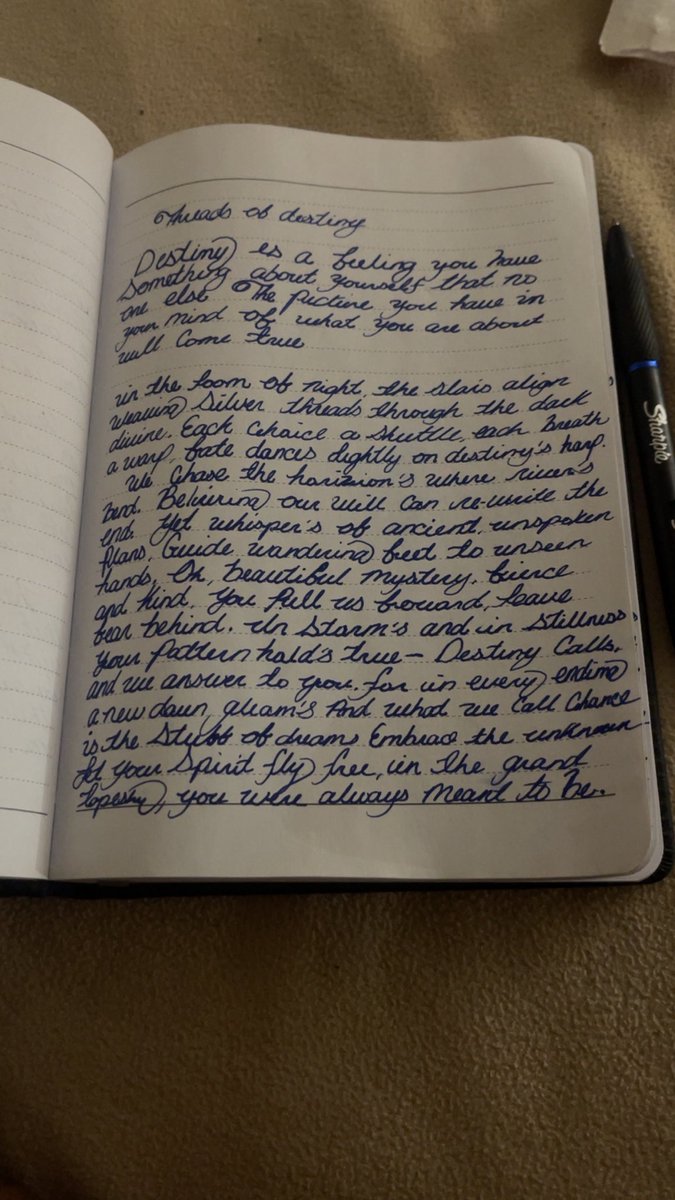 Threads of destiny
Destiny is a feeling you have
something about yourself that no
one else The picture you have in
your mind of what you are about
will Come true
in the loom of night, the stars align
weaving Silver threads through the dark
divine. Each Choice a shuttle, each breath
a warp fate dances lightly on destiny's harp.
We Chase the horizion's where rivers
bend. Believing our will can re-write the
end. Yet whisper's of ancient, unspoken
plans, Guide wandering feet to unseen
hands, Oh, beautiful mystery, fierce
and Kind, You Pull us forward, leave
fear behind. In Storm's and in Stillness,
your Pattern hold's true— Destiny Calls,
and we answer to you. for in every ending
a new dawn, gleam's And what we Call Chance
is the Stuff of dreams Embrace the unknown
let Your Spirit fly free, in the grand
tapestry, you were always Meant to be.
Sharpie